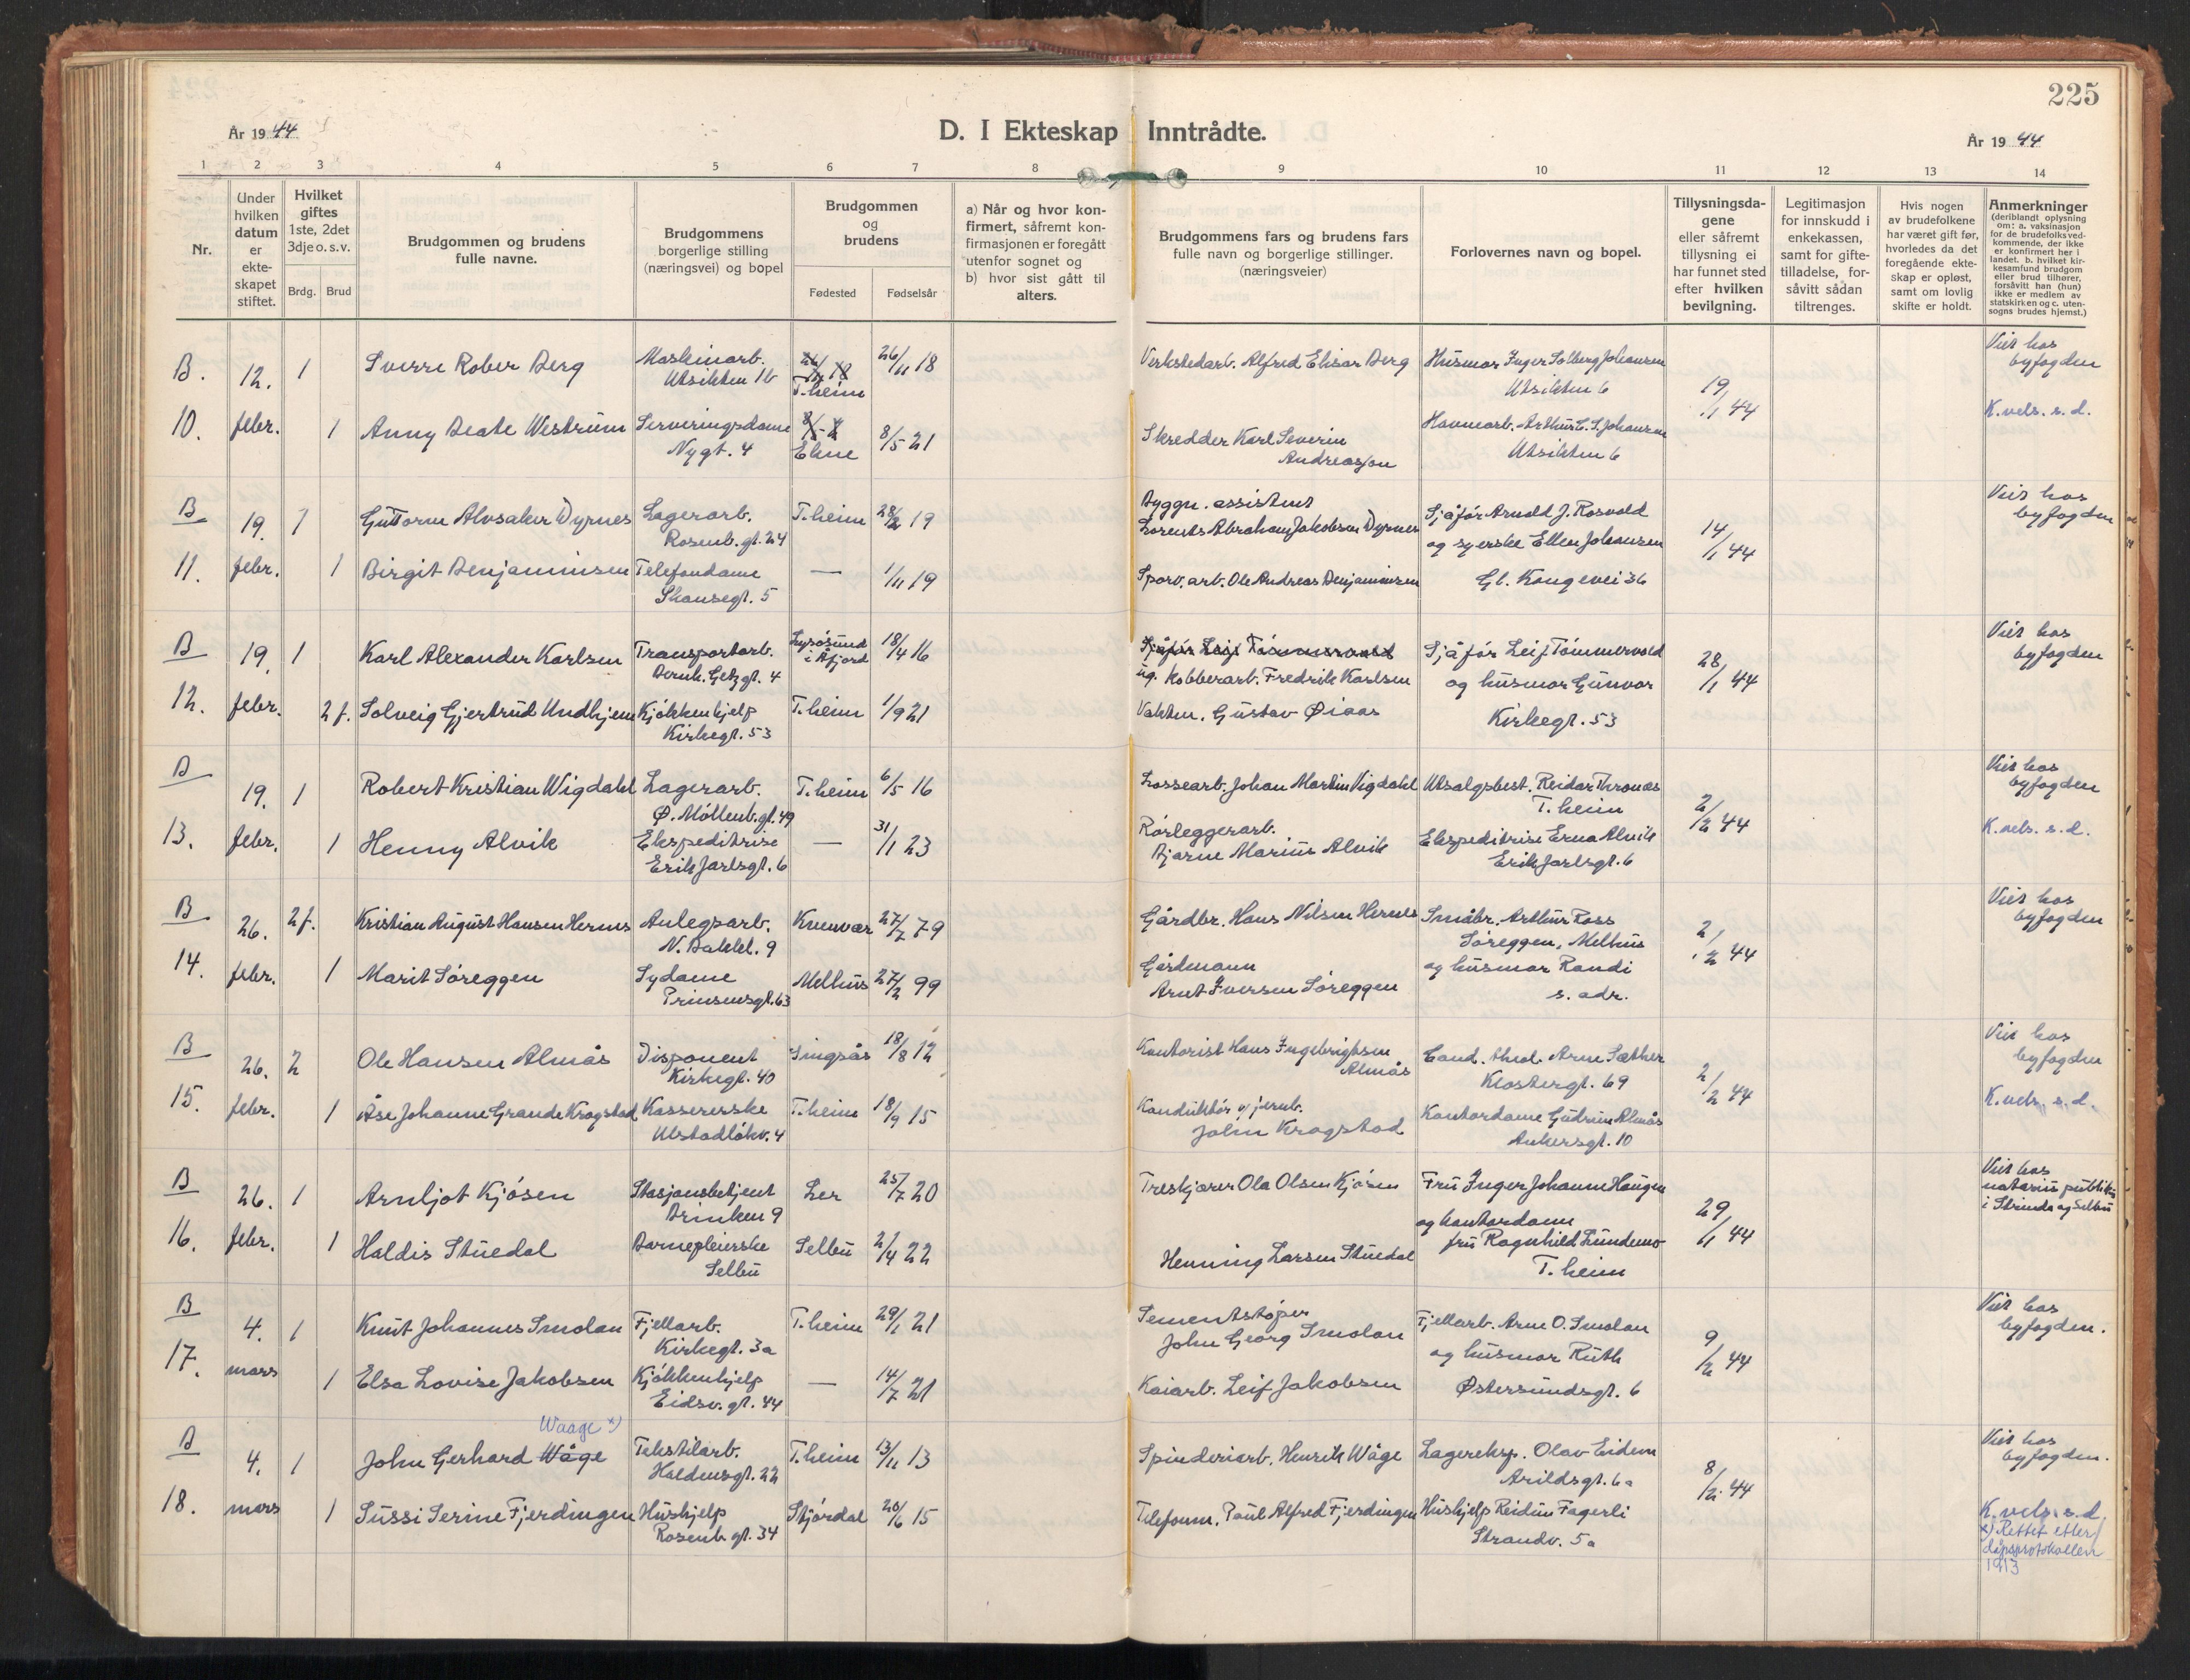 225
År 1944
D. I Ekteskap Inntrådte.
År 1944
1 2 3 4 5 6 7 8 9 10 11 12 13 14
Nr.
Under hvilken datum er ekte-skapet stiftet.
Hvilket giftes 1ste, 2det 3dje o. s. v.
Brdg. Brud
Brudgommen og brudens fulle navne.
Brudgommens borgerlige stilling (næringsvei) og bopel
Brudgommen og brudens
Fødested Fødselsår
a) Når og hvor kon-firmert, såfremt kon-firmasjonen er foregått utenfor sognet og b) hvor sist gått til alters.
Brudgommens fars og brudens fars fulle navn og borgerlige stillinger. (næringsveier)
Forlovernes navn og bopel.
Tillysningsda-gene eller såfremt tillysning ei har funnet sted efter hvilken bevilgning.
Legitimasjon for innskudd i enkekassen, samt for gifte-tilladelse, for-såvitt sådan tiltrenges.
Hvis nogen av brudefolkene har været gift før, hvorledes da det foregående ekte-skap er opløst, samt om lovlig skifte er holdt.
Anmerkninger (deriblandt oplysning om: a. vaksinasjon for de brudefolks ved-kommende, der ikke er konfirmert her i landet. b. hvilket kir-kesamfund brudgom eller brud tilhører, forsåvitt han (hun) ikke er medlem av statskirken og c. uten-sogns brudes hjemst.)
B. 12. 1 Sverre Rober Berg Maskinarb. Utsikten 1b T.heim 26/11 18 Verkstedarb. Alfred Elisar Berg Husmor Inger Solberg Johansen Utsikten 6 19/1 44 Viet hos byfogden
10. febr. 1 Anny Beate Westrum Serveringsdame Nygt. 4 Ekne 8/5 21 Skredder Karl Severin Andreasson Havnearb. Arthur C. S. Johansen Utsikten 6 K.vels. s. d.
B 19. 1 Guttorm Alvsaker Dyrnes Lagerarb. Rosenb. gt. 24 T.heim 28/2 19 Byggn. assistent Lorents Abraham Jakobsen Dyrnes Sjåfør Arnold J. Rosvold og syerske Ellen Johansen 14/1 44 Viet hos byfogden
11. febr. 1 Birgit Benjaminsen Telefondame Skansegt. 5 — 1/11 19 Sporv. arb. Ole Andreas Benjaminsen Gl. Kongevei 36
B 19. 1 Karl Alexander Karlsen Transportarb. Bernh. Getz gt. 4 Lysøsund i Åfjord 18/4 16 Sjåfør Leif Tømmervold ug. Kobberarb. Fredrik Karlsen Sjåfør Leif Tømmervold og husmor Gunvor 28/1 44 Viet hos byfogden
12. febr. 2 f. Solveig Gjertrud Undhjem Kjøkkenhjelp Kirkegt. 53 T.heim 1/9 21 Vaktm. Gustav Øiaas Kirkegt. 53
B 19. 1 Robert Kristian Wigdahl Lagerarb. Ø. Møllenb.gt. 49 T.heim 6/5 16 Lossearb. Johan Martin Vigdahl Utsalgsbest. Reidar Thronæs T. heim 2/2 44 Viet hos byfogden
13. febr. 1 Henny Alvik Ekspeditrise Erik Jarlsgt. 6 — 31/1 23 Rørleggerarb. Bjarne Marius Alvik Ekspeditrise Erna Alvik Erik Jarlsgt. 6 K.vels. s. d.
B 26. 2 f. Kristian August Hansen Hernes Anlegsarb. N. Bakkl. 9 Kvenvær 27/7 79 Gårdbr. Hans Nilsen Hernes Småbr. Arthur Ross Søreggen, Melhus 2/2 44 Viet hos byfogden
14. febr. 1 Marit Søreggen Sydame Prinsensgt. 63 Melhus 27/2 99 Gårdmann Arnt Iversen Søreggen og husmor Randi s. adr.
B 26. 2 Ole Hansen Almås Disponent Kirkegt. 40 Singsås 18/8 12 Kontorist Hans Ingebrigtsen Almås Cand. theol. Arne Sæther Klostergt. 69 2/2 44 Viet hos byfogden
15. febr. 1 Åse Johanne Grande Krogstad Kassererske Ulstadløkv. 4 T.heim 18/9 15 Konduktør v/ jernb. John Krogstad Kontordame Gudrun Almås Ankersgt. 10 K.vels. s. d.
B 26. 1 Arnljot Kjøsen Stasjonsbetjent Brinken 9 Ler 25/7 20 Treskjærer Ola Olsen Kjøsen Fru Inger Johanne Haugen og kontordame 29/1 44 Viet hos notarius publikus i Strinda og Selbu
16. febr. 1 Haldis Stuedal Barnepleierske Selbu Selbu 2/4 22 Henning Larsen Stuedal fru Ragnhild Lundemo T. heim
B 4. 1 Knut Johannes Smolan Fjellarb. Kirkegt. 3a T.heim 29/1 21 Sementstøper John Georg Smolan Fjellarb. Arne O. Smolan og husmor Ruth 9/2 44 Viet hos byfogden.
17. mars 1 Elsa Lovise Jakobsen Kjøkkenhjelp Eidsv. gt. 44 — 14/7 21 Kaiarb. Leif Jakobsen Østersundsgt. 6
B 4. 1 John Gerhard Wåge Waage x) Tekstilarb. Haldensgt. 22 T.heim 13/11 13 Spinderiarb. Henrik Wåge Lagereksp. Olav Eidem Arildsgt. 6a 8/2 44 Viet hos byfogden.
18. mars 1 Sussi Serine Fjerdingen Hushjelp Rosenb. gt. 34 Stjørdal 20/6 15 Telefonm. Paul Alfred Fjerdingen Hushjelp Reidun Fagerli Strandv. 5a K.vels. s. d.
x) Rettet etter dåpsprotokollen 1913